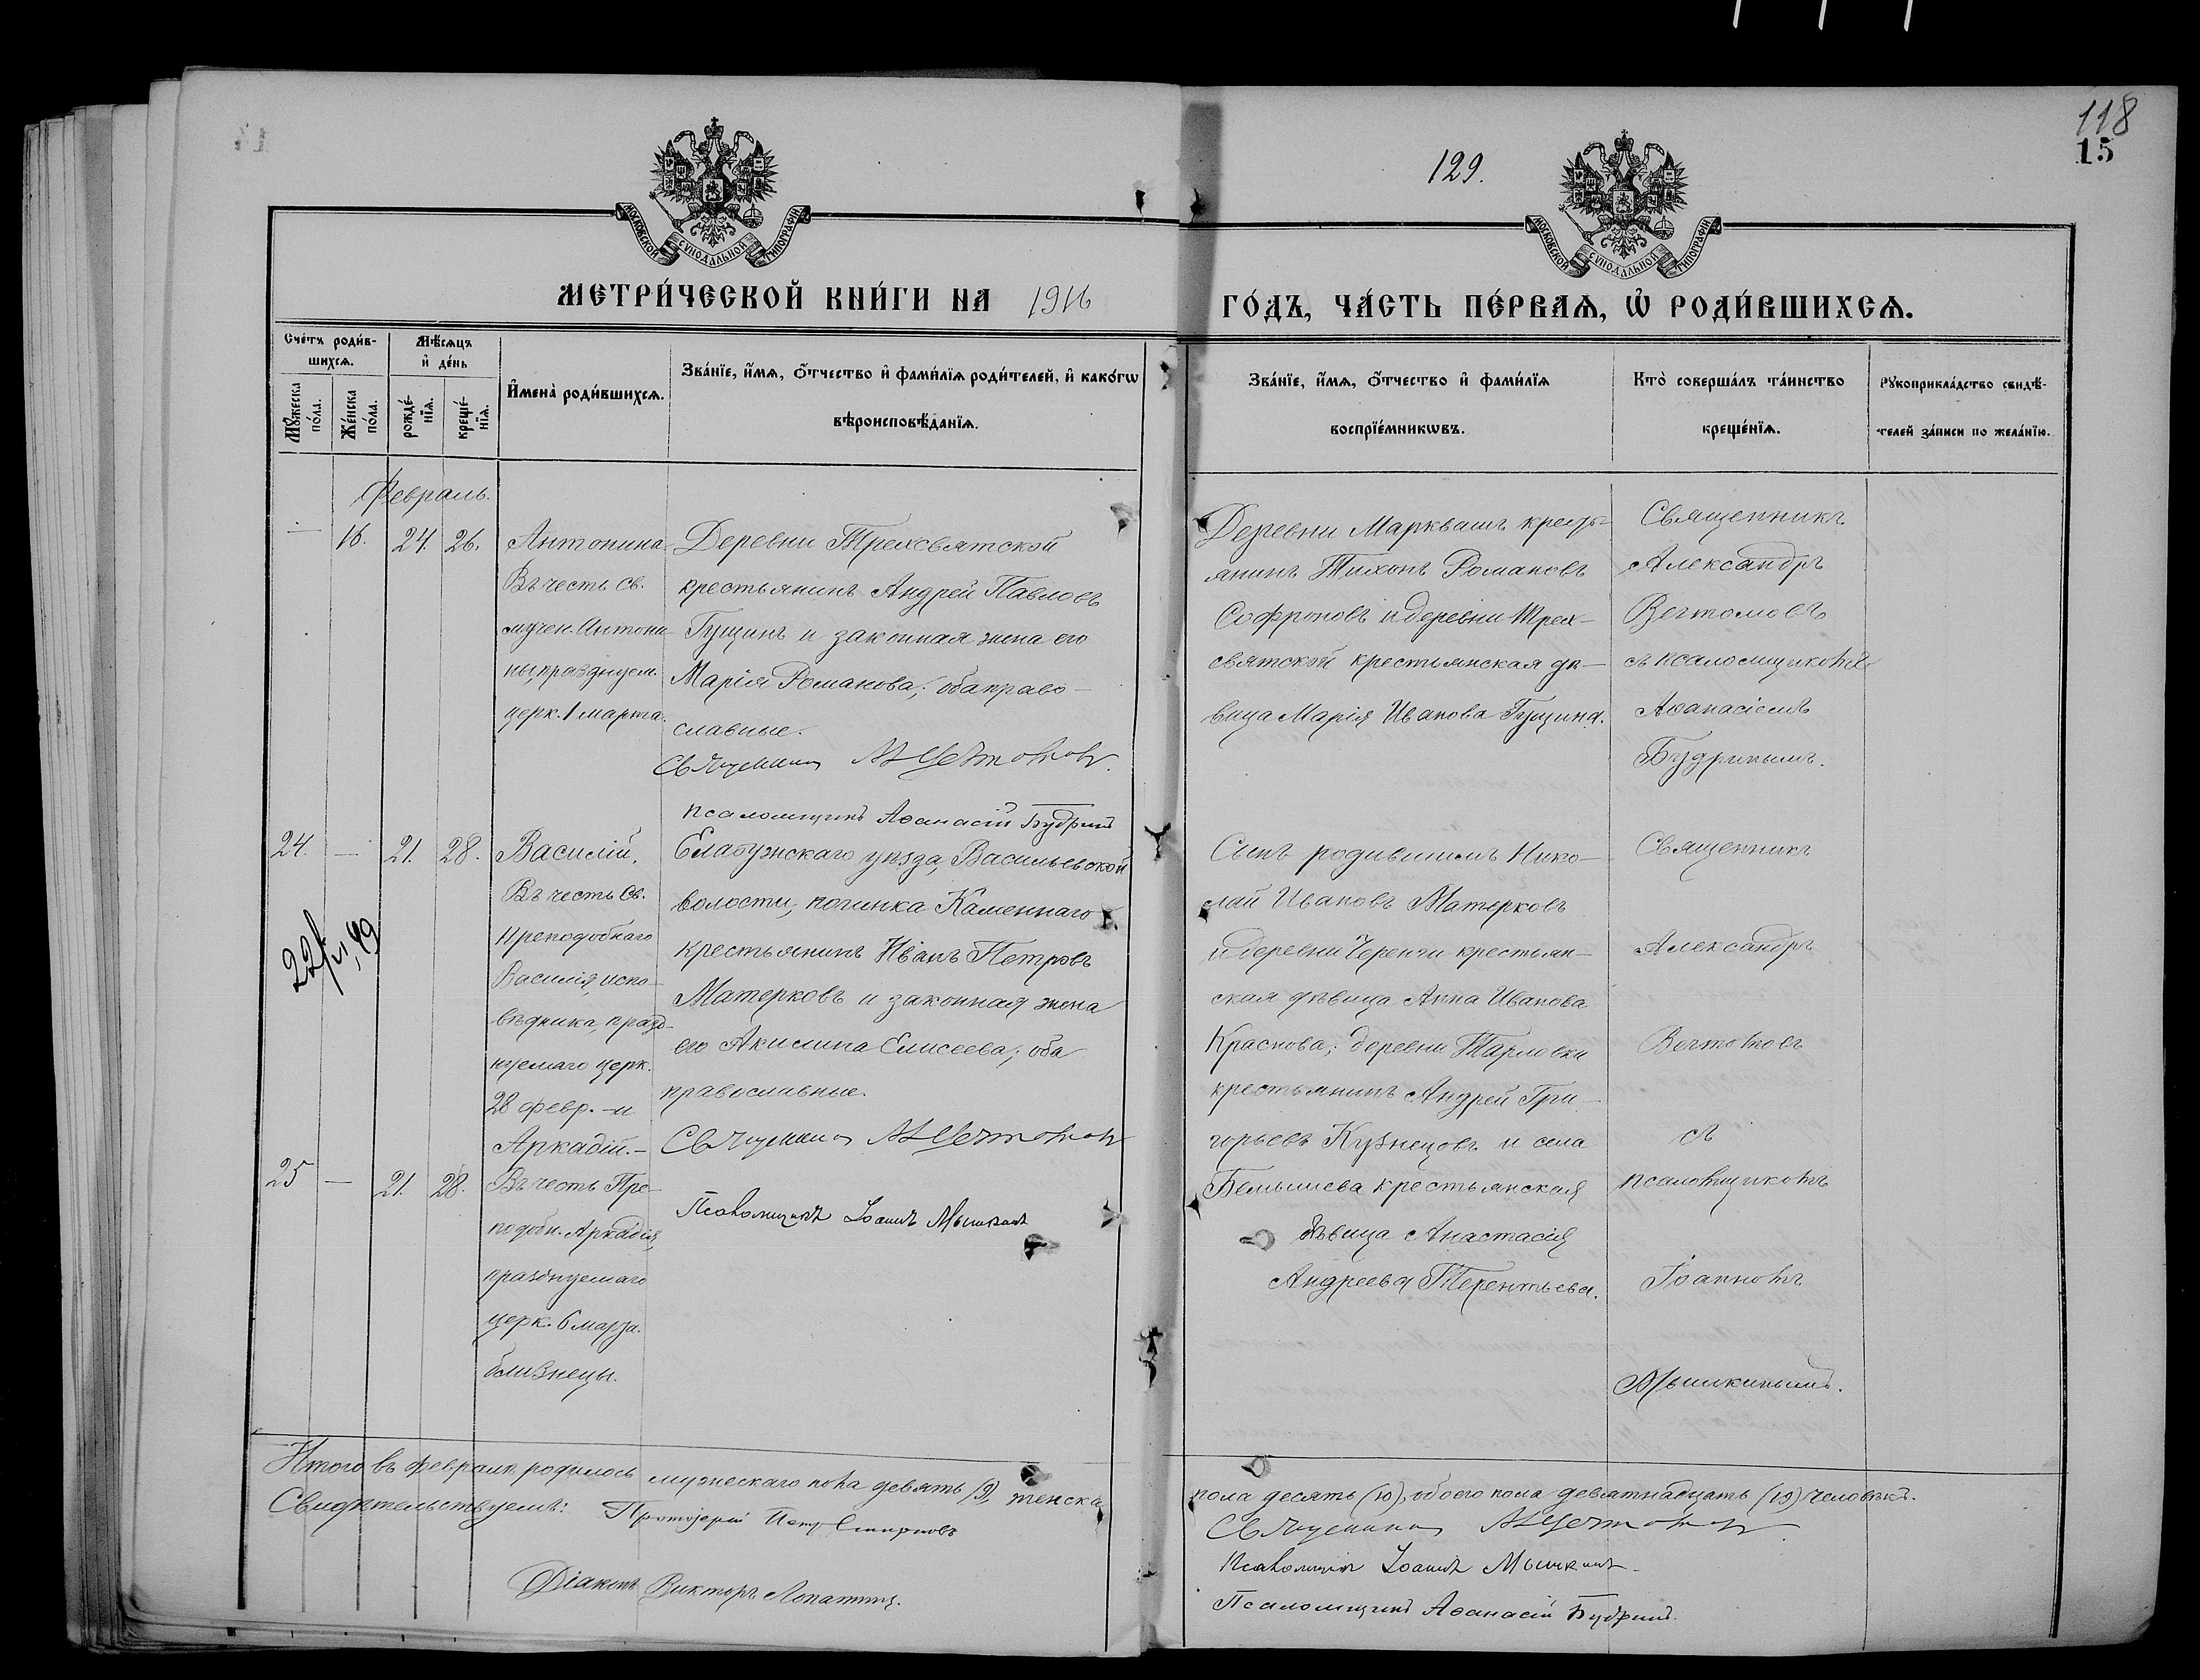 118
15
129.
МОСКОВСКОЙ СѴНОДАЛЬНОЙ ТИПОГРАФІИ
МОСКОВСКОЙ СѴНОДАЛЬНОЙ ТИПОГРАФІИ
МЕТРИ́ЧЕСКОЙ КНИ́ГИ НА 1916 ГО́ДЪ, ЧА́СТЬ ПЕ́РВАѦ, Ѡ҆ РОДИ́ВШИХСѦ.
Сче́тъ роди́в-
шихсѧ.
Мꙋ́жеска по́ла.
Же́нска по́ла.
Мѣ́сѧцъ
и҆ де́нь
рожде́-
нїѧ.
креще́-
нїѧ.
И҆мена̀ роди́вшихсѧ.
Зва́нїе, и҆́мѧ, ѻ҆́тчество и҆ фами́лїѧ роди́телей, и҆ како́гѡ
вѣроисповѣ́данїѧ.
Зва́нїе, и҆́мѧ, ѻ҆́тчество и҆ фами́лїѧ
воспрїе́мникѡвъ.
Кто̀ соверша́лъ та́инство
креще́нїѧ.
Рꙋкоприкла́дство свидѣ́-
телей за́писи по жела́нїю.
Февраль.
— 16. 24. 26.
Антонина
Въ честь св.
мучен. Антони
ны, празднуем.
церк. 1 марта.
Деревни Трехсвятской
крестьянинъ Андрей Павловъ
Гущинъ и законная жена его
Марія Романова; оба право-
славные.
Священникъ А. Вечтомовъ.
Псаломщикъ Аѳанасій Будринъ
Деревни Марквашъ кресть-
янинъ Тихонъ Романовъ
Софроновъ и деревни Трех-
святской крестьянская дѣ-
вица Марія Иванова Гущина.
Священникъ
Александръ
Вечтомовъ
съ псаломщикомъ
Аѳанасіемъ
Будринымъ.
24. — 21. 28.
Василій,
Въ честь св.
Преподобнаго
Василія, испо-
вѣдника, празд-
нуемаго церк.
28 февр. - и
Аркадій. -
25 — 21. 28.
Въ честь Пре-
подобн. Аркадія,
празднуемаго
церк. 6 марта.
близнецы.
Елабужскаго уѣзда, Васильевской
волости, починка Каменнаго
крестьянинъ Иванъ Петровъ
Матерковъ и законная жена
его Акилина Елисеева; оба
православные.
Священникъ А. Вечтомовъ
Псаломщикъ Іоаннъ Мышкинъ
Сынъ родившимъ Нико-
лай Ивановъ Матерковъ
и деревни Черенчи крестьян-
ская дѣвица Анна Иванова
Краснова; деревни Тарловки
крестьянинъ Андрей Гри-
горьевъ Кузнецовъ и села
Бемышева крестьянская
дѣвица Анастасія
Андреева Терентьева.
Священникъ
Александръ
Вечтомовъ
съ
псаломщикомъ
Іоанномъ
Мышкинымъ.
Итого въ февралѣ родилось мужескаго пола девять (9), женска
пола десять (10), обоего пола девятнадцать (19) человѣкъ.
Свидѣтельствуемъ: Протоіерей Петръ Смирновъ
Священникъ А. Вечтомовъ.
Діаконъ Викторъ Лопатинъ.
Псаломщикъ Іоаннъ Мышкинъ
Псаломщикъ Аѳанасій Будринъ.